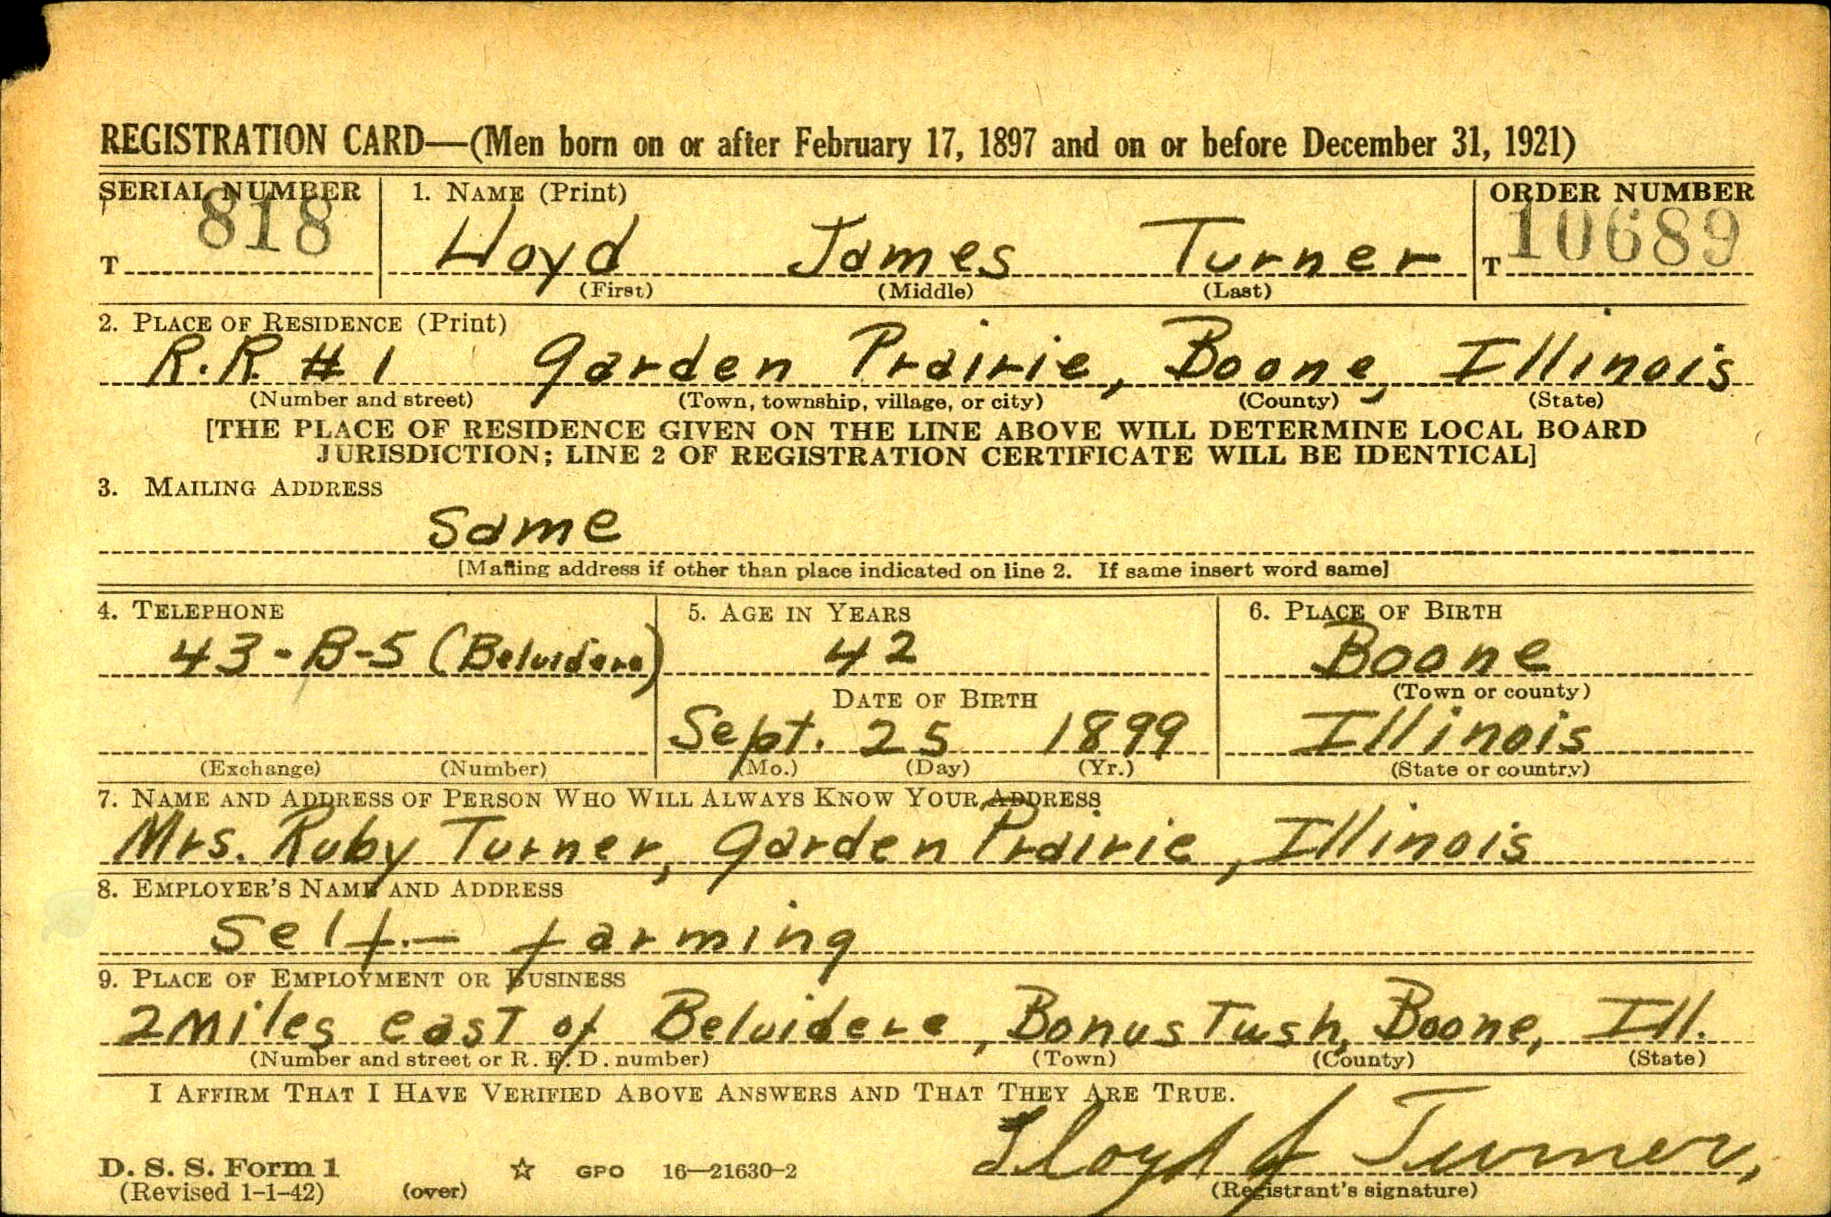 REGISTRATION CARD—(Men born on or after February 17, 1897 and on or before December 31, 1921)
SERIAL NUMBER 1. NAME (Print) ORDER NUMBER
T 818 Lloyd James Turner T 10689
(First) (Middle) (Last)
2. PLACE OF RESIDENCE (Print)
R.R. # 1 Garden Prairie, Boone, Illinois
(Number and street) (Town, township, village, or city) (County) (State)
[THE PLACE OF RESIDENCE GIVEN ON THE LINE ABOVE WILL DETERMINE LOCAL BOARD
JURISDICTION; LINE 2 OF REGISTRATION CERTIFICATE WILL BE IDENTICAL]
3. MAILING ADDRESS
Same
[Mailing address if other than place indicated on line 2. If same insert word same]
4. TELEPHONE 5. AGE IN YEARS 6. PLACE OF BIRTH
43-B-5 (Belvidere) 42 Boone
DATE OF BIRTH (Town or county)
Sept. 25 1899 Illinois
(Exchange) (Number) (Mo.) (Day) (Yr.) (State or country)
7. NAME AND ADDRESS OF PERSON WHO WILL ALWAYS KNOW YOUR ADDRESS
Mrs. Ruby Turner, Garden Prairie, Illinois
8. EMPLOYER'S NAME AND ADDRESS
Self.— farming
9. PLACE OF EMPLOYMENT OR BUSINESS
2 miles east of Belvidere, Bonus Twsh, Boone, Ill.
(Number and street or R. F. D. number) (Town) (County) (State)
I AFFIRM THAT I HAVE VERIFIED ABOVE ANSWERS AND THAT THEY ARE TRUE.
Lloyd J Turner,
D. S. S. Form 1 ☆ GPO 16—21630-2
(Revised 1-1-42) (over) (Registrant's signature)